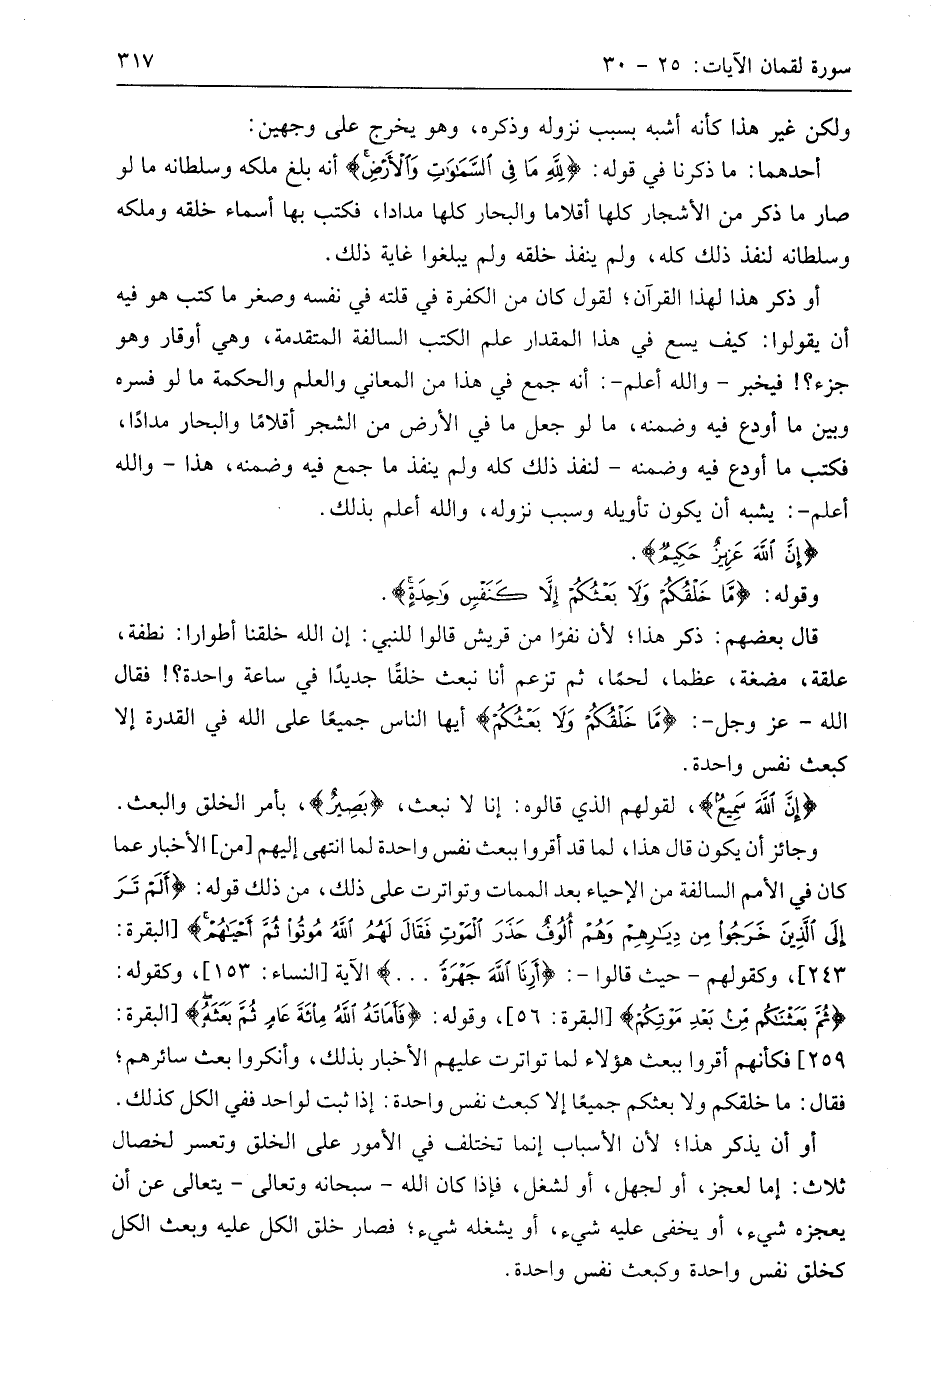 سورة لقمان الآيات: ٢٥ - ٣٠ ٣١٧
ولكن غير هذا كأنه أشبه بسبب نزوله وذكره، وهو يخرج على وجهين:
أحدهما: ما ذكرنا في قوله: ﴿لِلَّهِ مَا فِي ٱلسَّمَٰوَٰتِ وَٱلْأَرْضِۚ﴾ أنه بلغ ملكه وسلطانه ما لو
صار ما ذكر من الأشجار كلها أقلاما والبحار كلها مدادا، فكتب بها أسماء خلقه وملكه
وسلطانه لنفذ ذلك كله، ولم ينفذ خلقه ولم يبلغوا غاية ذلك.
أو ذكر هذا لهذا القرآن؛ لقول كان من الكفرة في قلته في نفسه وصغر ما كتب هو فيه
أن يقولوا: كيف يسع في هذا المقدار علم الكتب السالفة المتقدمة، وهي أوقار وهو
جزء؟! فيخبر - والله أعلم-: أنه جمع في هذا من المعاني والعلم والحكمة ما لو فسره
وبين ما أودع فيه وضمنه، ما لو جعل ما في الأرض من الشجر أقلامًا والبحار مدادًا،
فكتب ما أودع فيه وضمنه - لنفذ ذلك كله ولم ينفذ ما جمع فيه وضمنه، هذا - والله
أعلم-: يشبه أن يكون تأويله وسبب نزوله، والله أعلم بذلك.
﴿إِنَّ ٱللَّهَ عَزِيزٌ حَكِيمٌ﴾.
وقوله: ﴿مَّا خَلْقُكُمْ وَلَا بَعْثُكُمْ إِلَّا كَنَفْسٍ وَٰحِدَةٍۚ﴾.
قال بعضهم: ذكر هذا؛ لأن نفرًا من قريش قالوا للنبي: إن الله خلقنا أطوارا: نطفة،
علقة، مضغة، عظما، لحمًا، ثم تزعم أنا نبعث خلقًا جديدًا في ساعة واحدة؟! فقال
الله - عز وجل-: ﴿مَّا خَلْقُكُمْ وَلَا بَعْثُكُمْ﴾ أيها الناس جميعًا على الله في القدرة إلا
كبعث نفس واحدة.
﴿إِنَّ ٱللَّهَ سَمِيعٌ﴾، لقولهم الذي قالوه: إنا لا نبعث، ﴿بَصِيرٌ﴾، بأمر الخلق والبعث.
وجائز أن يكون قال هذا، لما قد أقروا ببعث نفس واحدة لما انتهى إليهم [من] الأخبار عما
كان في الأمم السالفة من الإحياء بعد الممات وتواترت على ذلك، من ذلك قوله: ﴿أَلَمْ تَرَ
إِلَى ٱلَّذِينَ خَرَجُوا۟ مِن دِيَٰرِهِمْ وَهُمْ أُلُوفٌ حَذَرَ ٱلْمَوْتِ فَقَالَ لَهُمُ ٱللَّهُ مُوتُوا۟ ثُمَّ أَحْيَٰهُمْۚ﴾ [البقرة:
٢٤٣]، وكقولهم - حيث قالوا -: ﴿أَرِنَا ٱللَّهَ جَهْرَةً ...﴾ الآية [النساء: ١٥٣]، وكقوله:
﴿ثُمَّ بَعَثْنَٰكُم مِّنۢ بَعْدِ مَوْتِكُمْ﴾ [البقرة: ٥٦]، وقوله: ﴿فَأَمَاتَهُ ٱللَّهُ مِا۟ئَةَ عَامٍ ثُمَّ بَعَثَهُۥۖ﴾ [البقرة:
٢٥٩] فكأنهم أقروا ببعث هؤلاء لما تواترت عليهم الأخبار بذلك، وأنكروا بعث سائرهم؛
فقال: ما خلقكم ولا بعثكم جميعًا إلا كبعث نفس واحدة: إذا ثبت لواحد ففي الكل كذلك.
أو أن يذكر هذا؛ لأن الأسباب إنما تختلف في الأمور على الخلق وتعسر لخصال
ثلاث: إما لعجز، أو لجهل، أو لشغل، فإذا كان الله - سبحانه وتعالى - يتعالى عن أن
يعجزه شيء، أو يخفى عليه شيء، أو يشغله شيء؛ فصار خلق الكل عليه وبعث الكل
كخلق نفس واحدة وكبعث نفس واحدة.